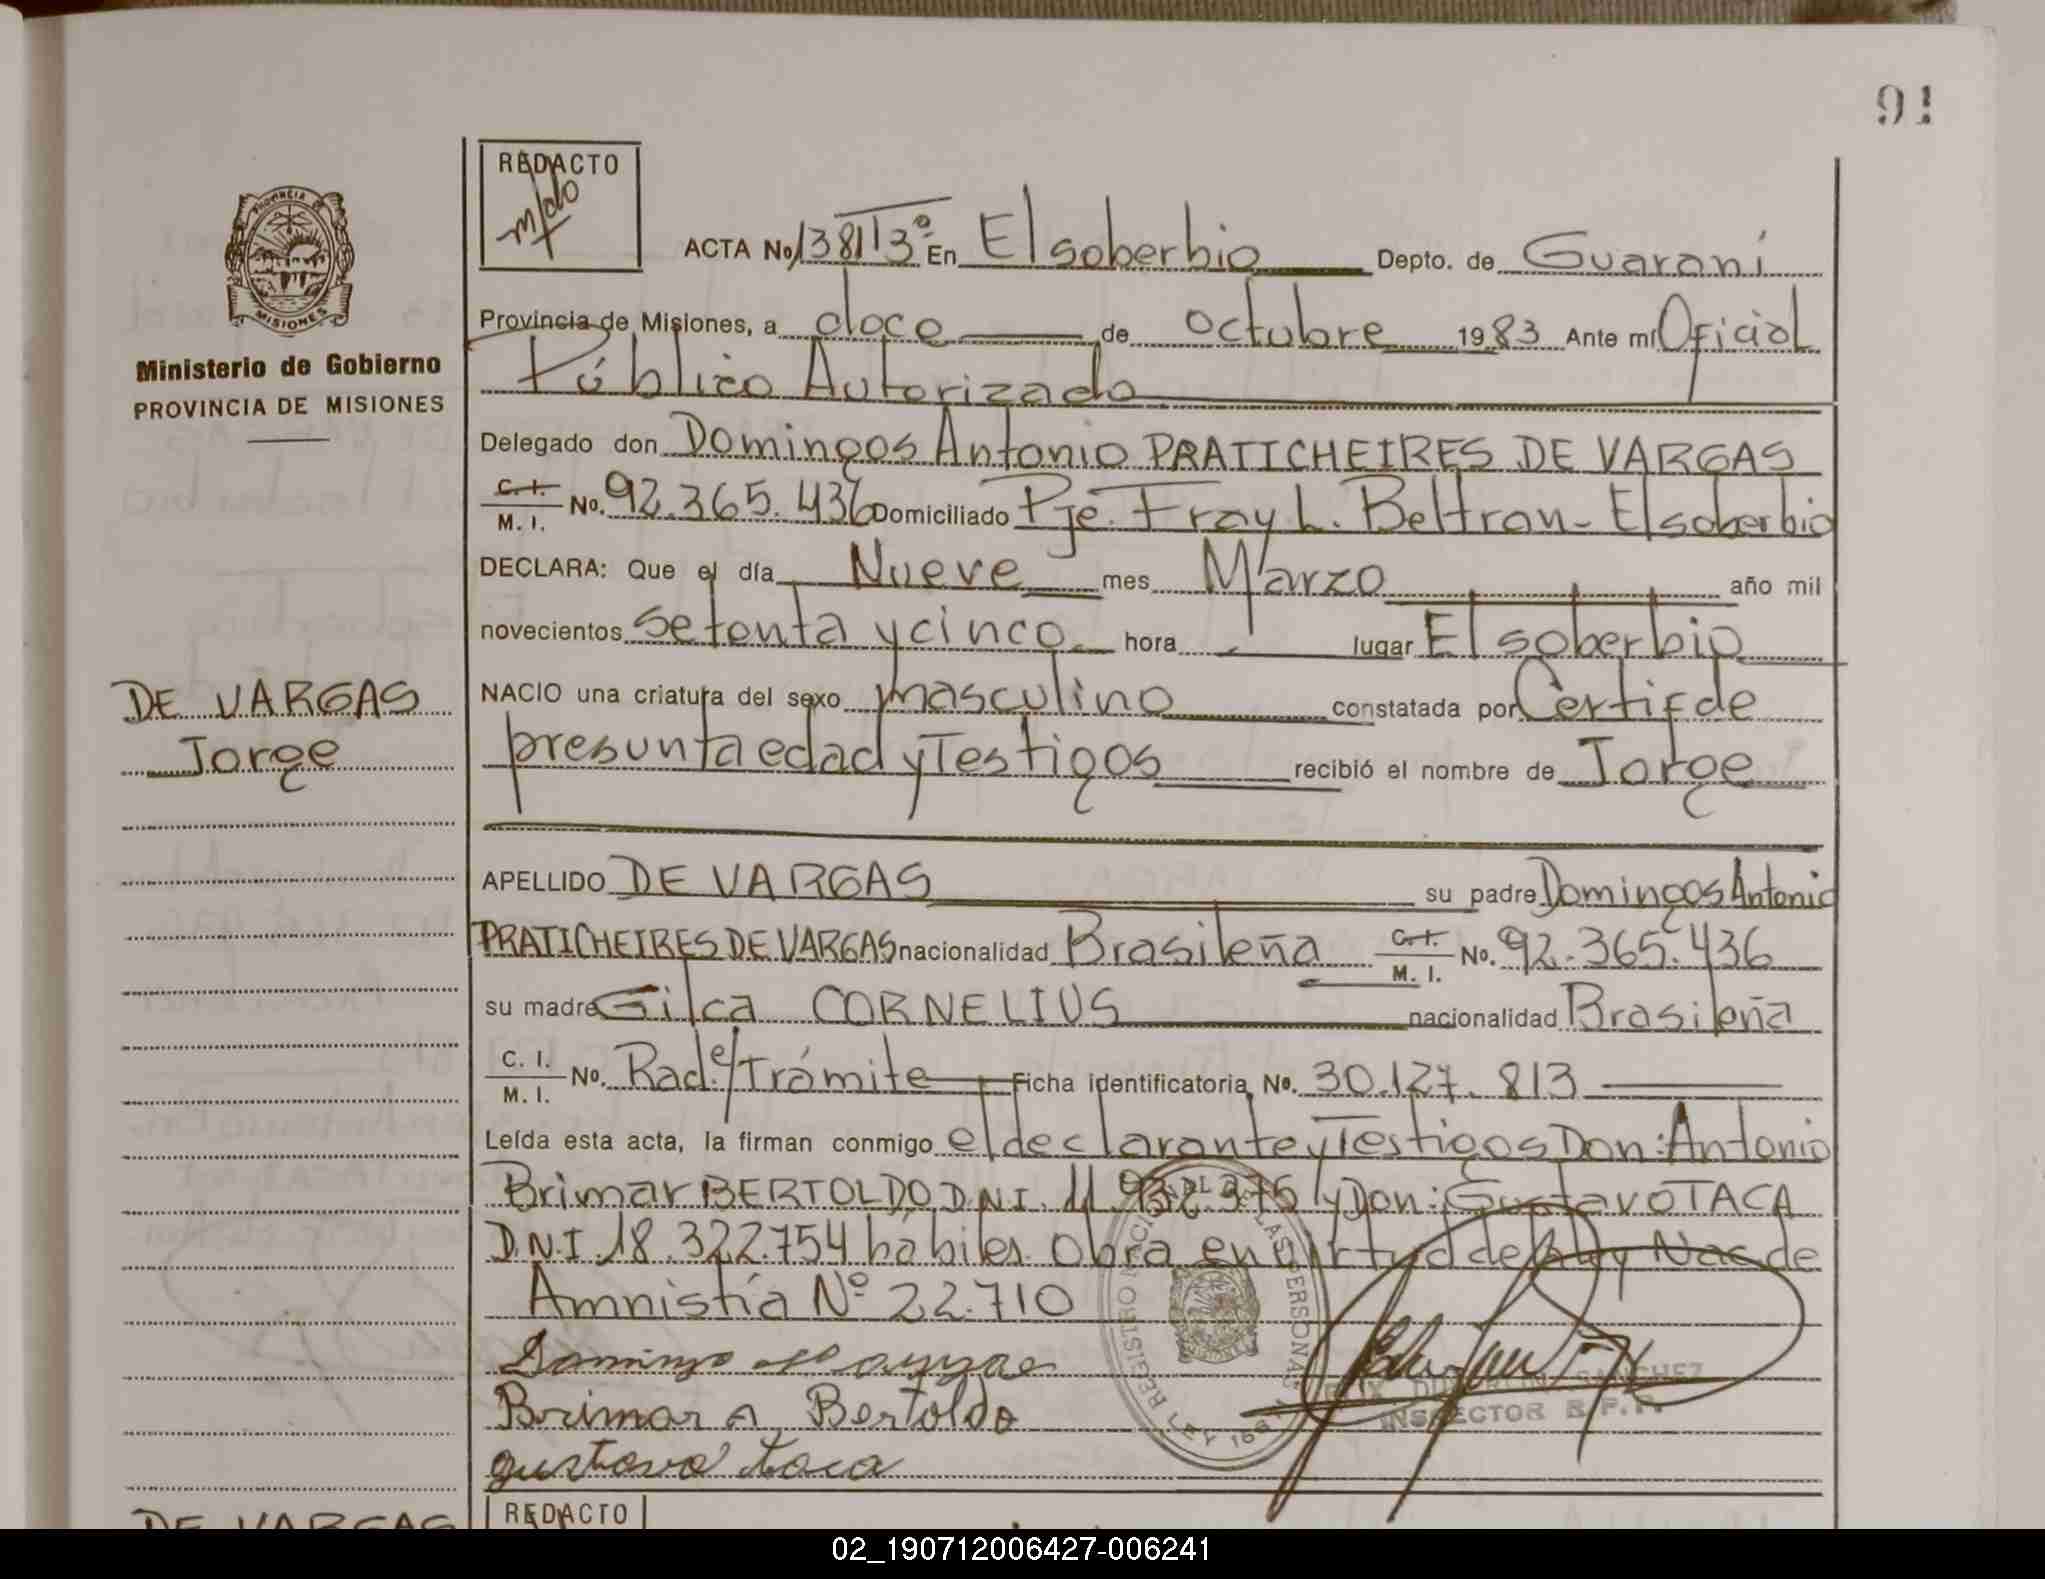 91
REDACTO
PROVINCIA DE
MISIONES
Ministerio de Gobierno
PROVINCIA DE MISIONES
ACTA No. 138113º En El soberbio Depto. de Guaraní
Provincia de Misiones, a doce de octubre 1983 Ante mí Oficial
Público Autorizado
Delegado don Domingos Antonio PRATICHEIRES DE VARGAS
C. I. / M. I. No. 92.365.436 Domiciliado Pje. Fray L. Beltran - El soberbio
DECLARA: Que el día Nueve mes Marzo año mil
novecientos setenta y cinco hora - lugar El soberbio
NACIO una criatura del sexo masculino constatada por Certif de
presunta edad y Testigos recibió el nombre de Jorge
DE VARGAS
Jorge
APELLIDO DE VARGAS su padre Domingos Antonio
PRATICHEIRES DE VARGAS nacionalidad Brasileña C. I. / M. I. No. 92.365.436
su madre Gilca CORNELIUS nacionalidad Brasileña
C. I. / M. I. No. Rad. e/ Trámite Ficha identificatoria No. 30.127.813
Leída esta acta, la firman conmigo el declarante y Testigos Don: Antonio
Brimar BERTOLDO D.N.I. 11. y Don: Gustavo TACA
D.N.I 18.322.754 hábiles. Obra en virtud de Ley Nac de
Amnistía Nº 22.710
Domingo
Brimar A Bertoldo
gustavo taca
REGISTRO LAS PERSONAS
SANCHEZ
INSPECTOR R.P.P.
DE VARGAS
REDACTO
02_190712006427-006241